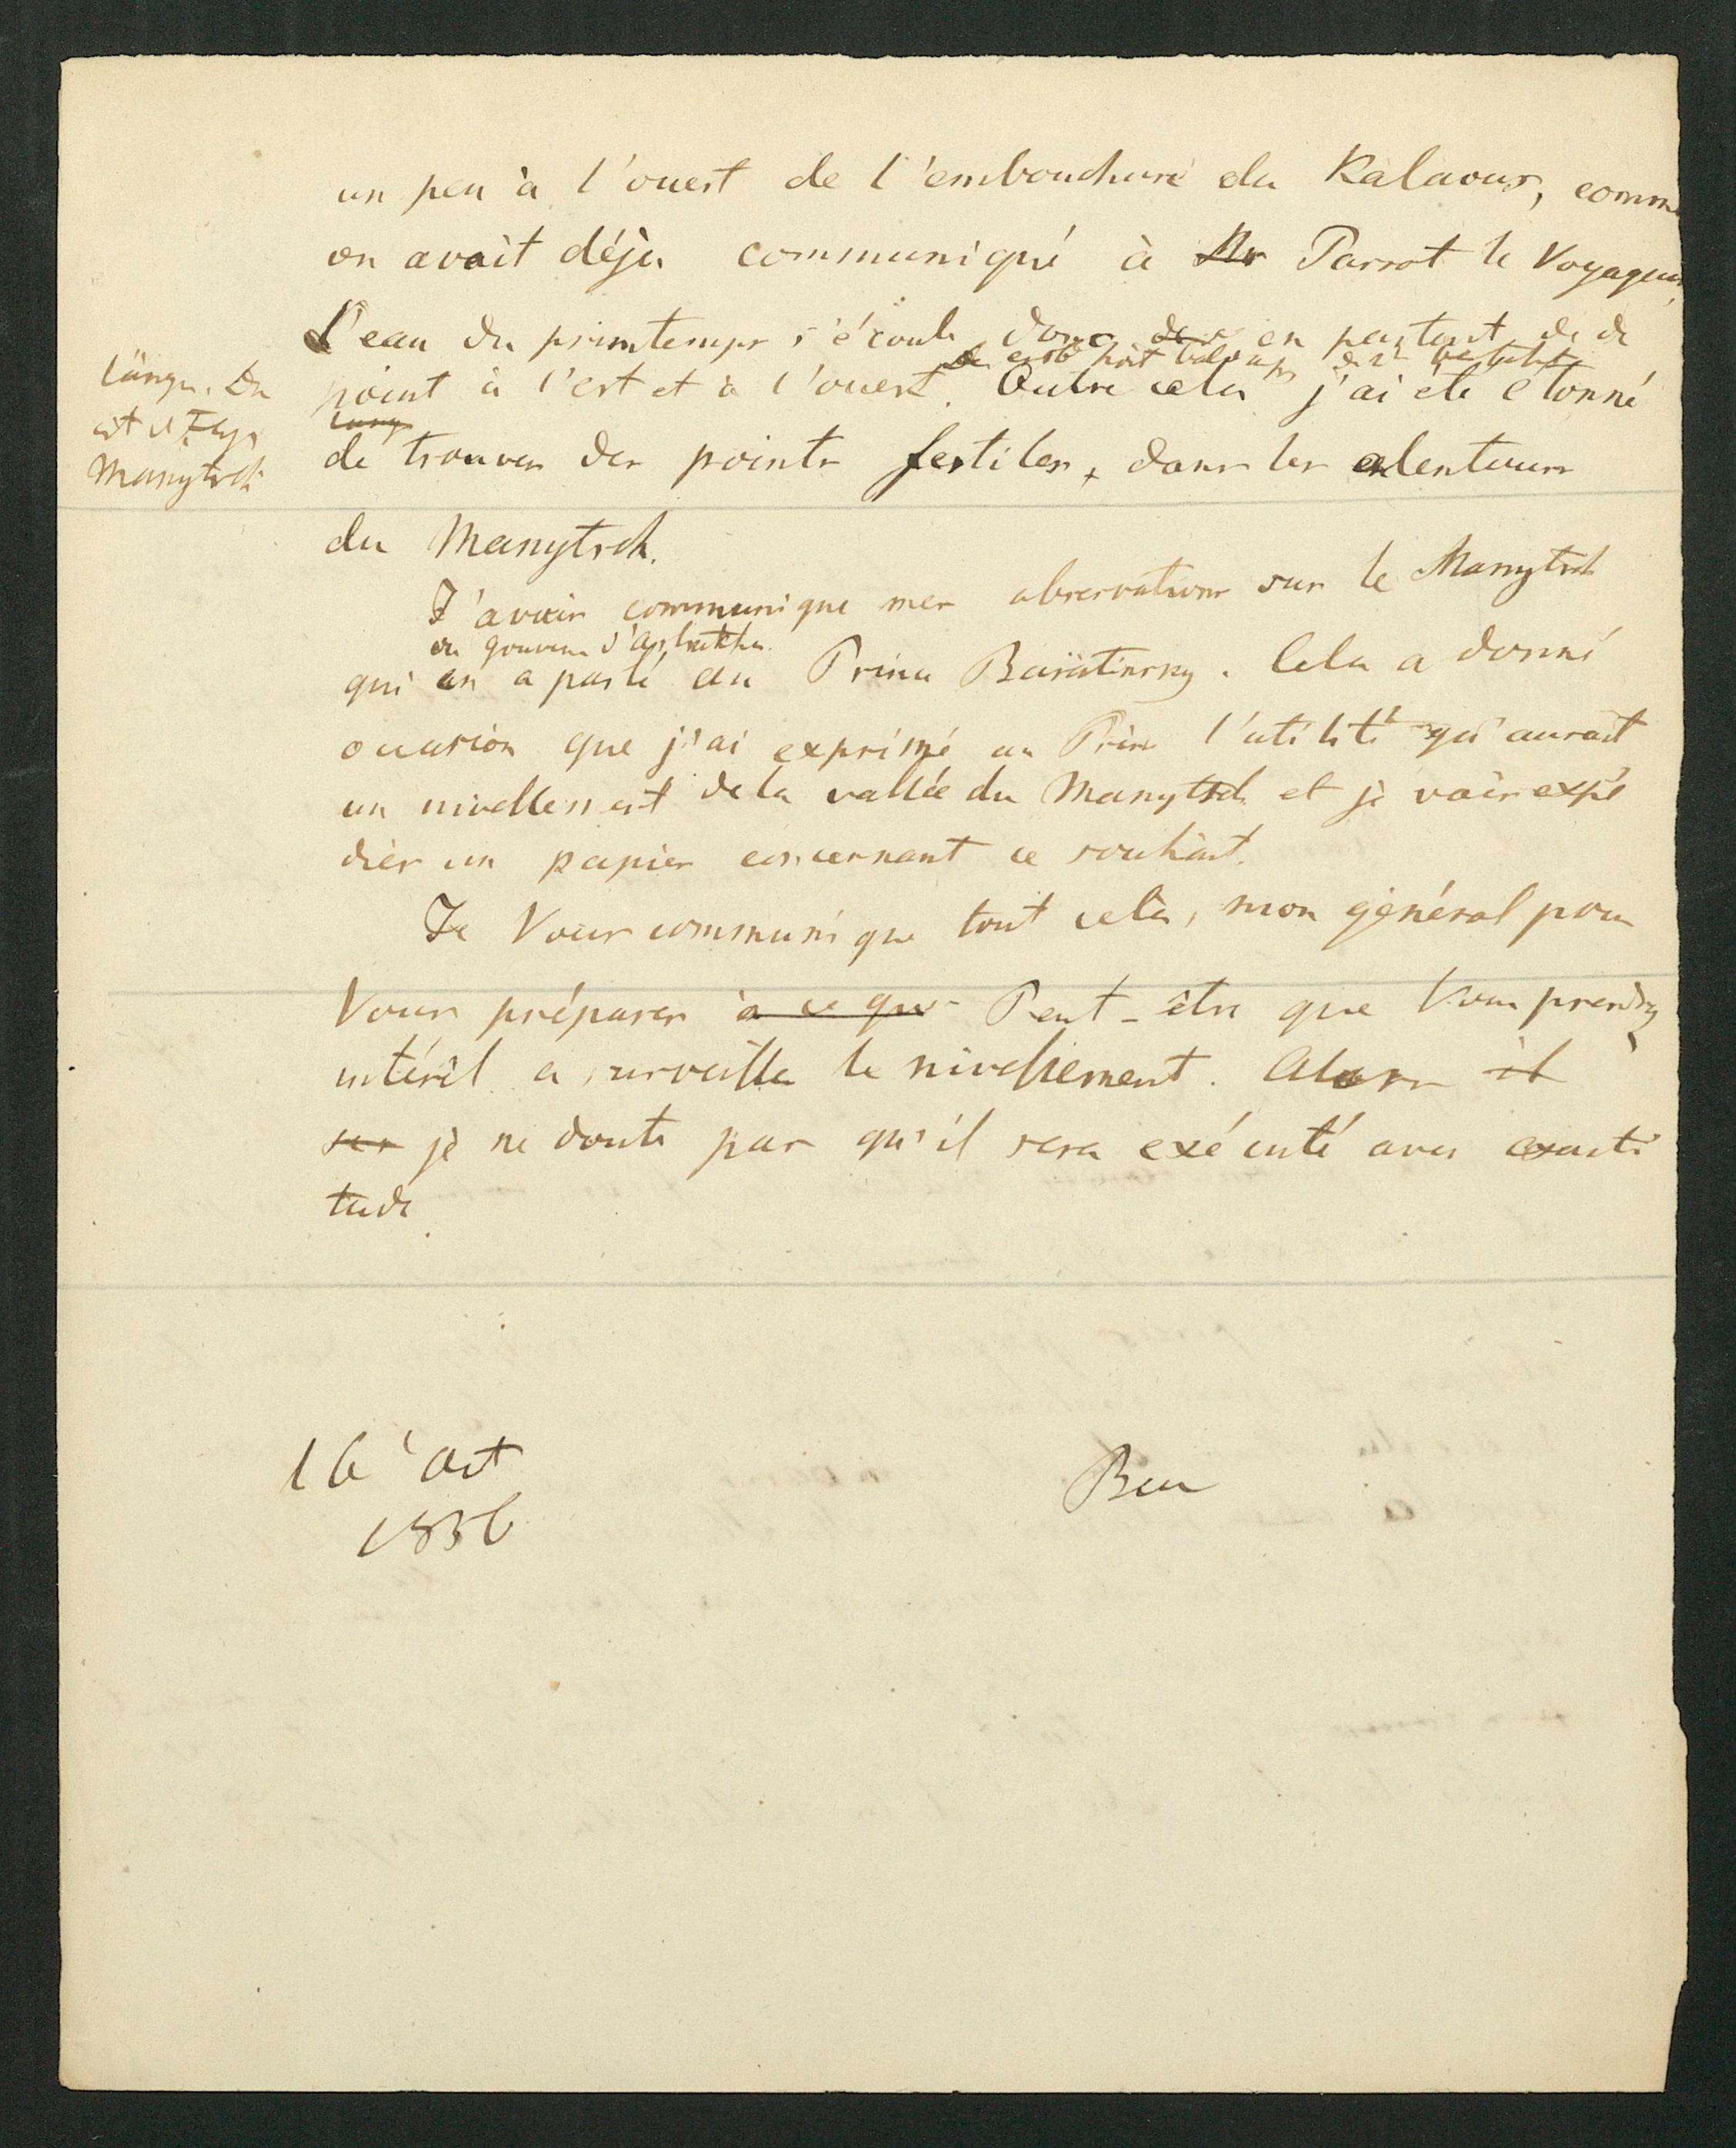 un peu à l'ouest de l'embouchure du Kalaous, comme
on avait déjà communiqué à Mr Parrot le Voyageur.
L'eau du printemps s'écoule donc en partant de ce
point à l'est et à l'ouest. Outre cela j'ai été étonné
Manytsch
de trouver des points fertiles, dans les alentours
du Manytsch.
J'avais communique mes observations sur le Manytsch
au gouvern d'Astrakhan
qui en a parlé au Prince Bariatinsky. Cela a donné
occasion que j'ai exprimé au Prince l'utilité qu'aurait
un nivellement de la vallée du Manytsch et je vais expé
dier un papier concernant ce souhait.
Je Vous communique tout cela, mon général pour
Vous préparer à ce que Peut-être que Vous prendrez
intérêt a surveiller le nivellement. Alors il
ser je ne doute pas qu'il sera exécuté avec exacti
tude.
16 Oct
1856
Baer